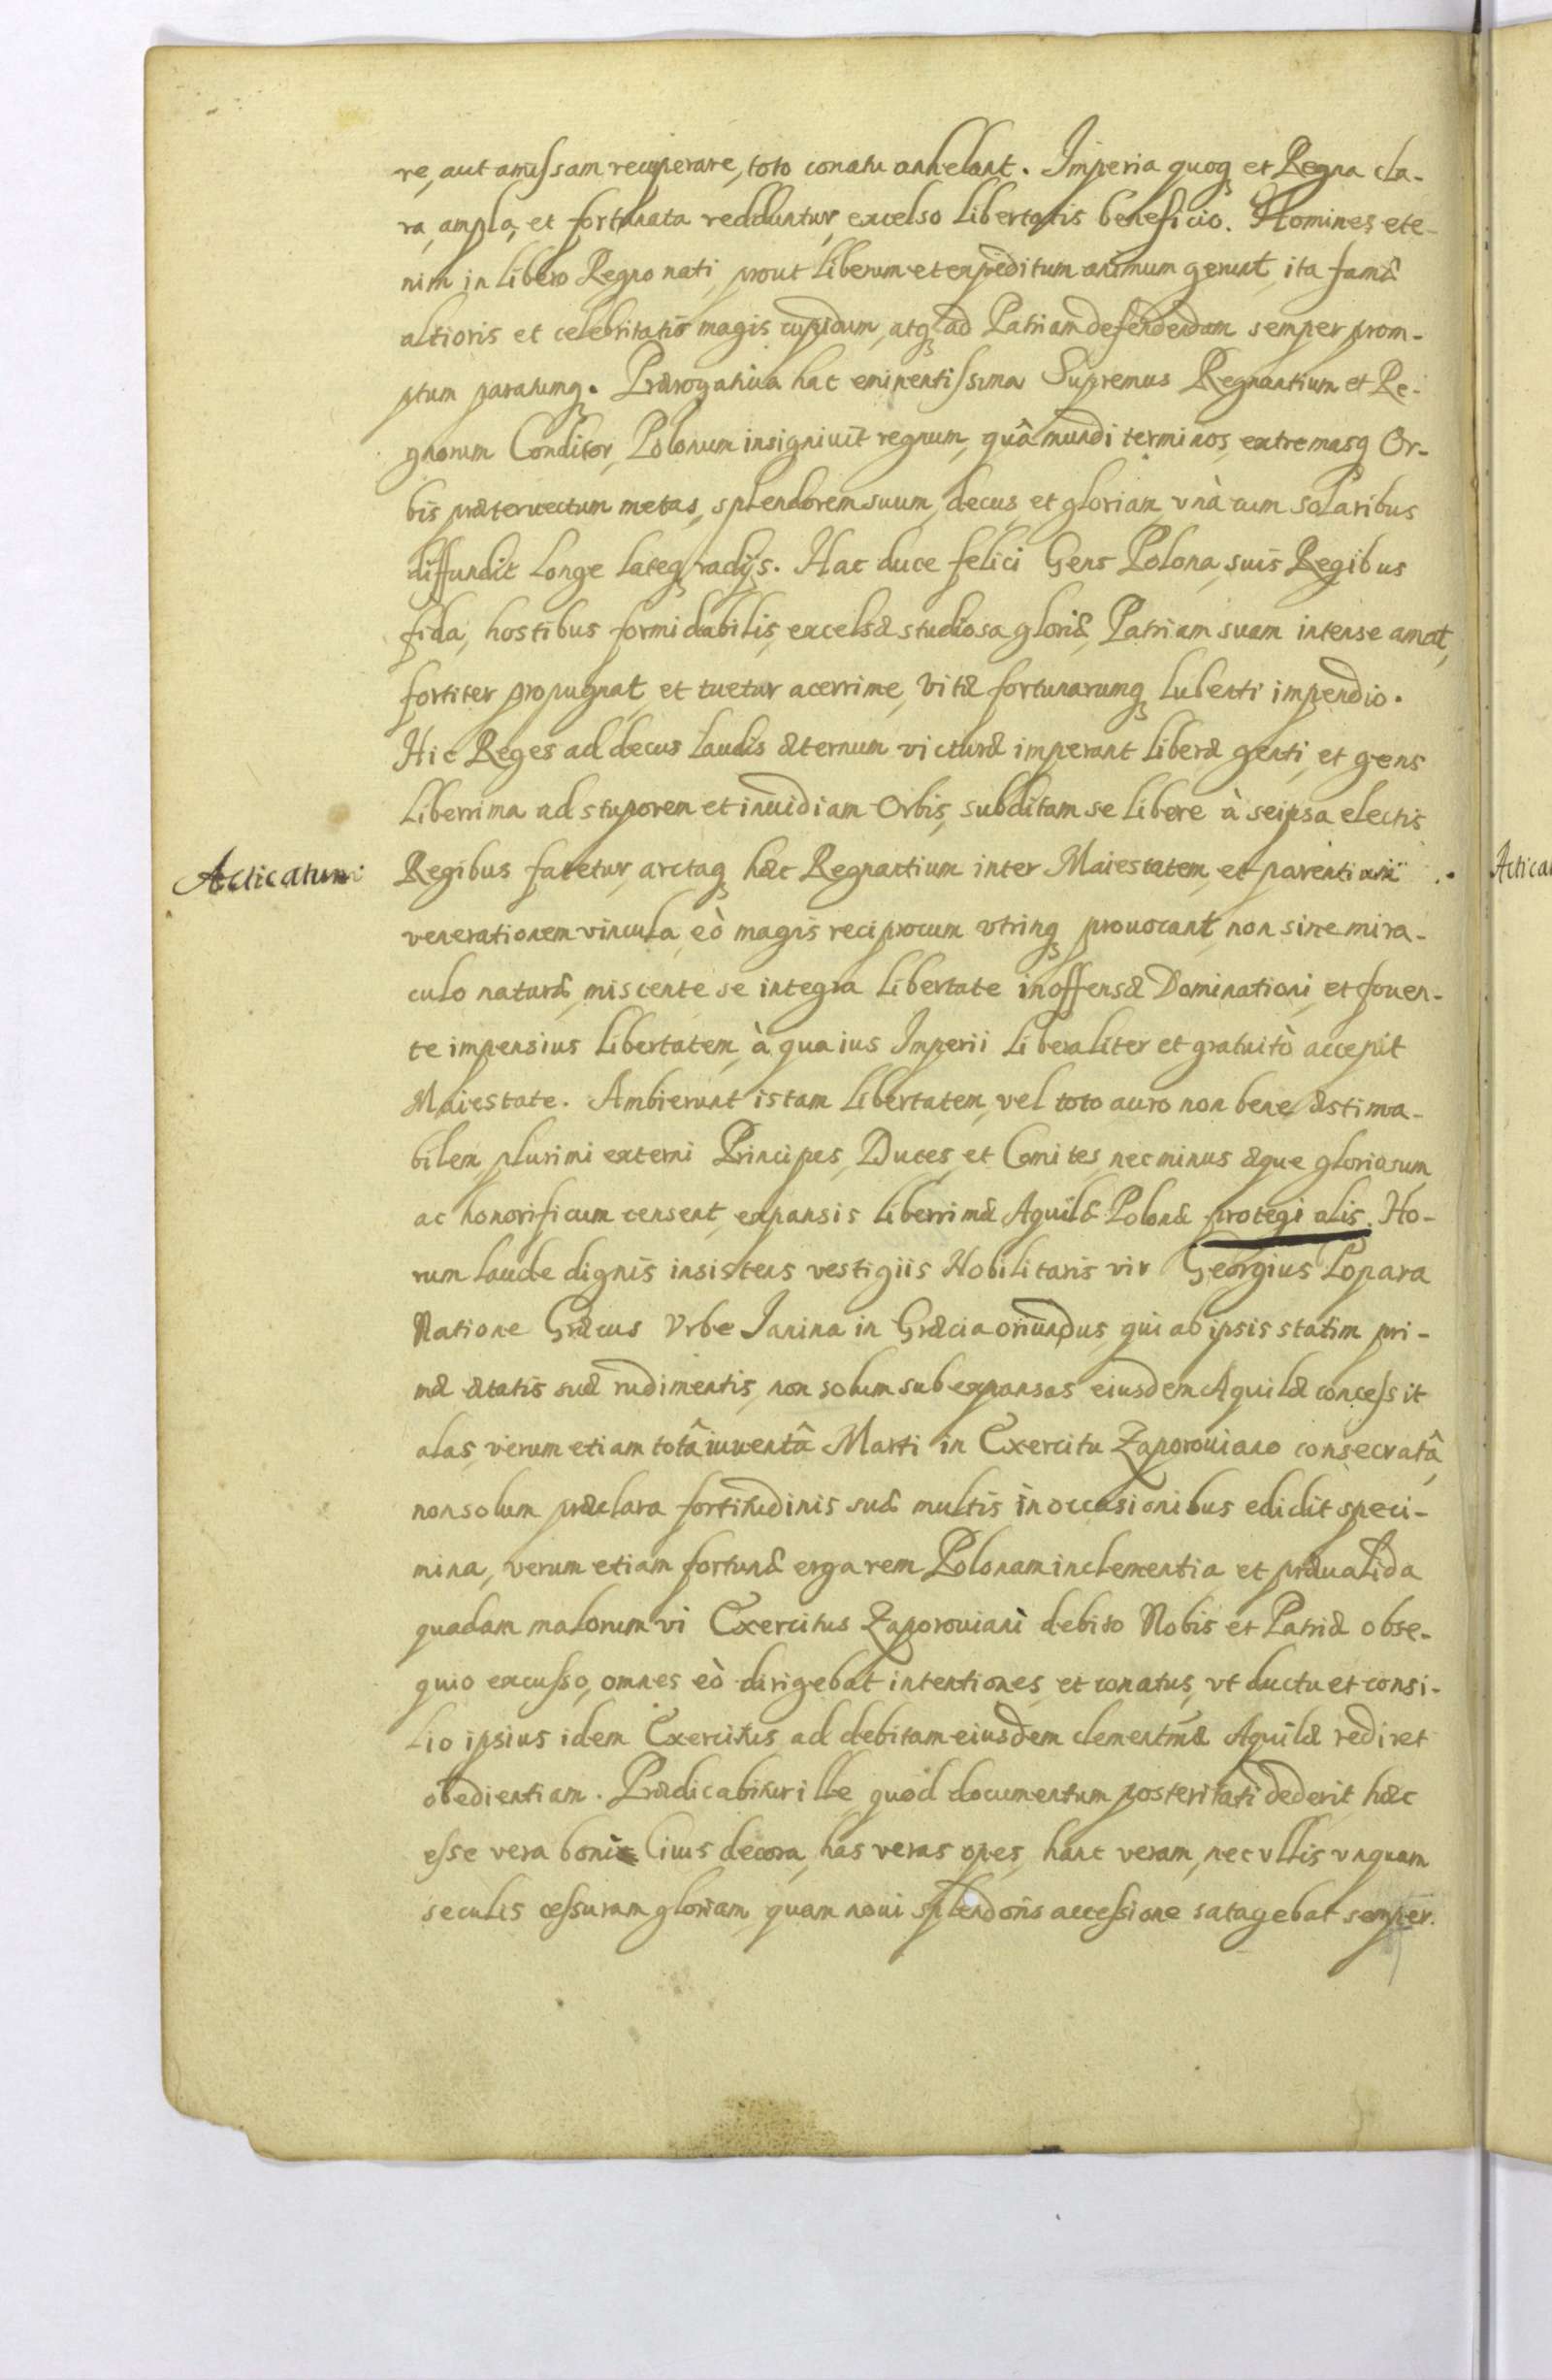 re, aut amissam recuperare, toto conatu anhelant. Imperia quoq et Regna cla-
ra, ampla, et fortunata redduntur, excelso libertatis beneficio. Homines ete-
nim in libero Regno nati, prout liberum et expeditum animum gerunt, ita famæ
altioris et celebritatis magis cupidum, atq ad Patriam defendendam semper prom-
ptum paratumq. Prærogatiua hac eminentissima Supremus Regnantium et Re-
gnorum Conditor, Polonum insigniuit regnum, quâ mundi terminos, extremasq Or-
bis præteruectum metas, splendorem suum, decus, et gloriam vnà cum solaribus
diffundit longe lateq radijs. Hac duce felici Gens Polona, suis Regibus
fida, hostibus formidabilis, excelsæ studiosa gloriæ, Patriam suam intense amat,
fortiter propugnat, et tuetur acerrime, vitæ fortunarumq lubenti impendio.
Hic Reges ad decus laudis æternum victuræ imperant liberæ genti, et gens
liberrima ad stuporem et inuidiam Orbis, subditam se libere à seipsa electis
Acticatum Regibus fatetur, arctaq hæc Regnantium inter Maiestatem, et parentium
venerationem vincula, eò magis reciprocum vtrinq prouocant, non sine mira-
culo naturæ, miscente se integra libertate inoffensæ Dominationi, et fouen-
te impensius libertatem, à qua ius Imperii liberaliter et gratuitò accepit
Maiestate. Ambierunt istam libertatem, vel toto auro non bene æstima-
bilem, plurimi externi Principes, Duces, et Comites, nec minus æque gloriosum,
ac honorificum censent, expansis liberrimæ Aquilæ Polonæ protegi alis. Ho-
rum laude dignis insistens vestigiis Nobilitaris vir Georgius Lopara
Natione Græcus Vrbe Janina in Græcia oriundus, qui ab ipsis statim pri-
mæ ætatis suæ rudimentis, non solum sub expansas eiusdem Aquilæ concessit
alas, verum etiam totâ iuuentâ Marti in Exercitu Zaporouiano consecratâ,
non solum præclara fortitudinis suæ multis in occasionibus edidit speci-
mina, verum etiam fortunæ erga rem Polonam inclementia et præualida
quadam malorum vi Exercitus Zaporouiani debito Nobis et Patriæ obse-
quio excusso, omnes eò dirigebat intentiones, et conatus, vt ductu et consi-
lio ipsius idem Exercitus ad debitam eiusdem clementmæ Aquilæ rediret
obedientiam. Prædicabitur ille quod documentum posteritati dederit hæc
esse vera boni Ciuis decora, has veras opes, hanc veram, nec vllis vnquam
seculis cessuram gloriam, quam noui splendoris accessione satagebat semper.